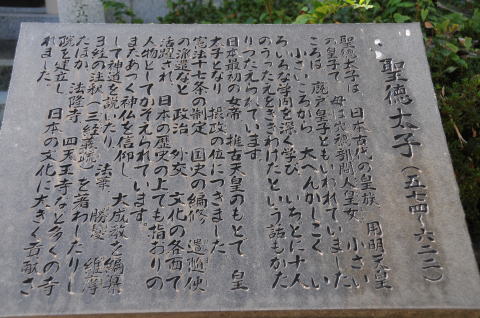 聖徳太子（五七四〜六二二）
聖徳太子は、日本古代の皇族、用明天皇
の皇子で、母は穴穂部間人皇女、小さい
ころは、厩戸皇子ともいわれていました。
小さいころから、大へんかしこく、い
ろいろな学問を深く学び、いちどに十人
のうったえをききわけたという話もかた
りつたえられています。
日本最初の女帝、推古天皇のもとで、皇
太子となり、摂政の位につきました。
憲法十七条の制定、国史の編修、遣隋使
の派遣など、政治、外交、文化の各面で
活躍され、日本の歴史の上でも指おりの
人物としてかぞえられています。
またあつく神仏を信仰し、大成経を編集
して神道を説いたり、法華、勝鬘、維摩
3経の注釈（三経義疏）を著わしたりし
たほか、法隆寺、四天王寺など多くの寺
院を建立し、日本の文化に大きく貢献さ
れました。